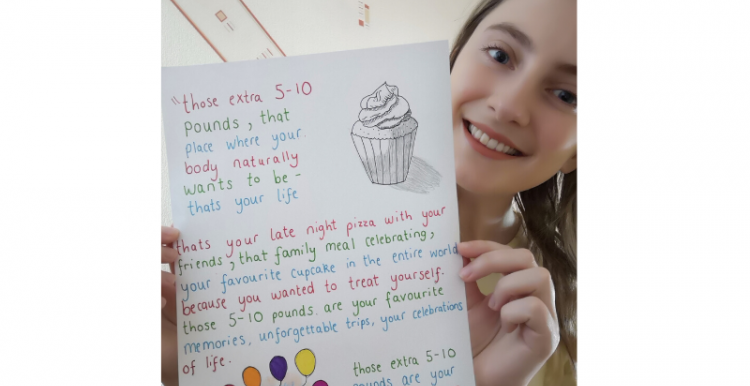 "those extra 5-10
pounds, that
place where your
body naturally
wants to be -
thats your life
thats your late night pizza with your
friends, that family meal celebrating,
your favourite cupcake in the entire world
because you wanted to treat yourself.
those 5-10 pounds. are your favourite
memories, unforgettable trips, your celebrations
of life.
those extra 5-10
pounds are your